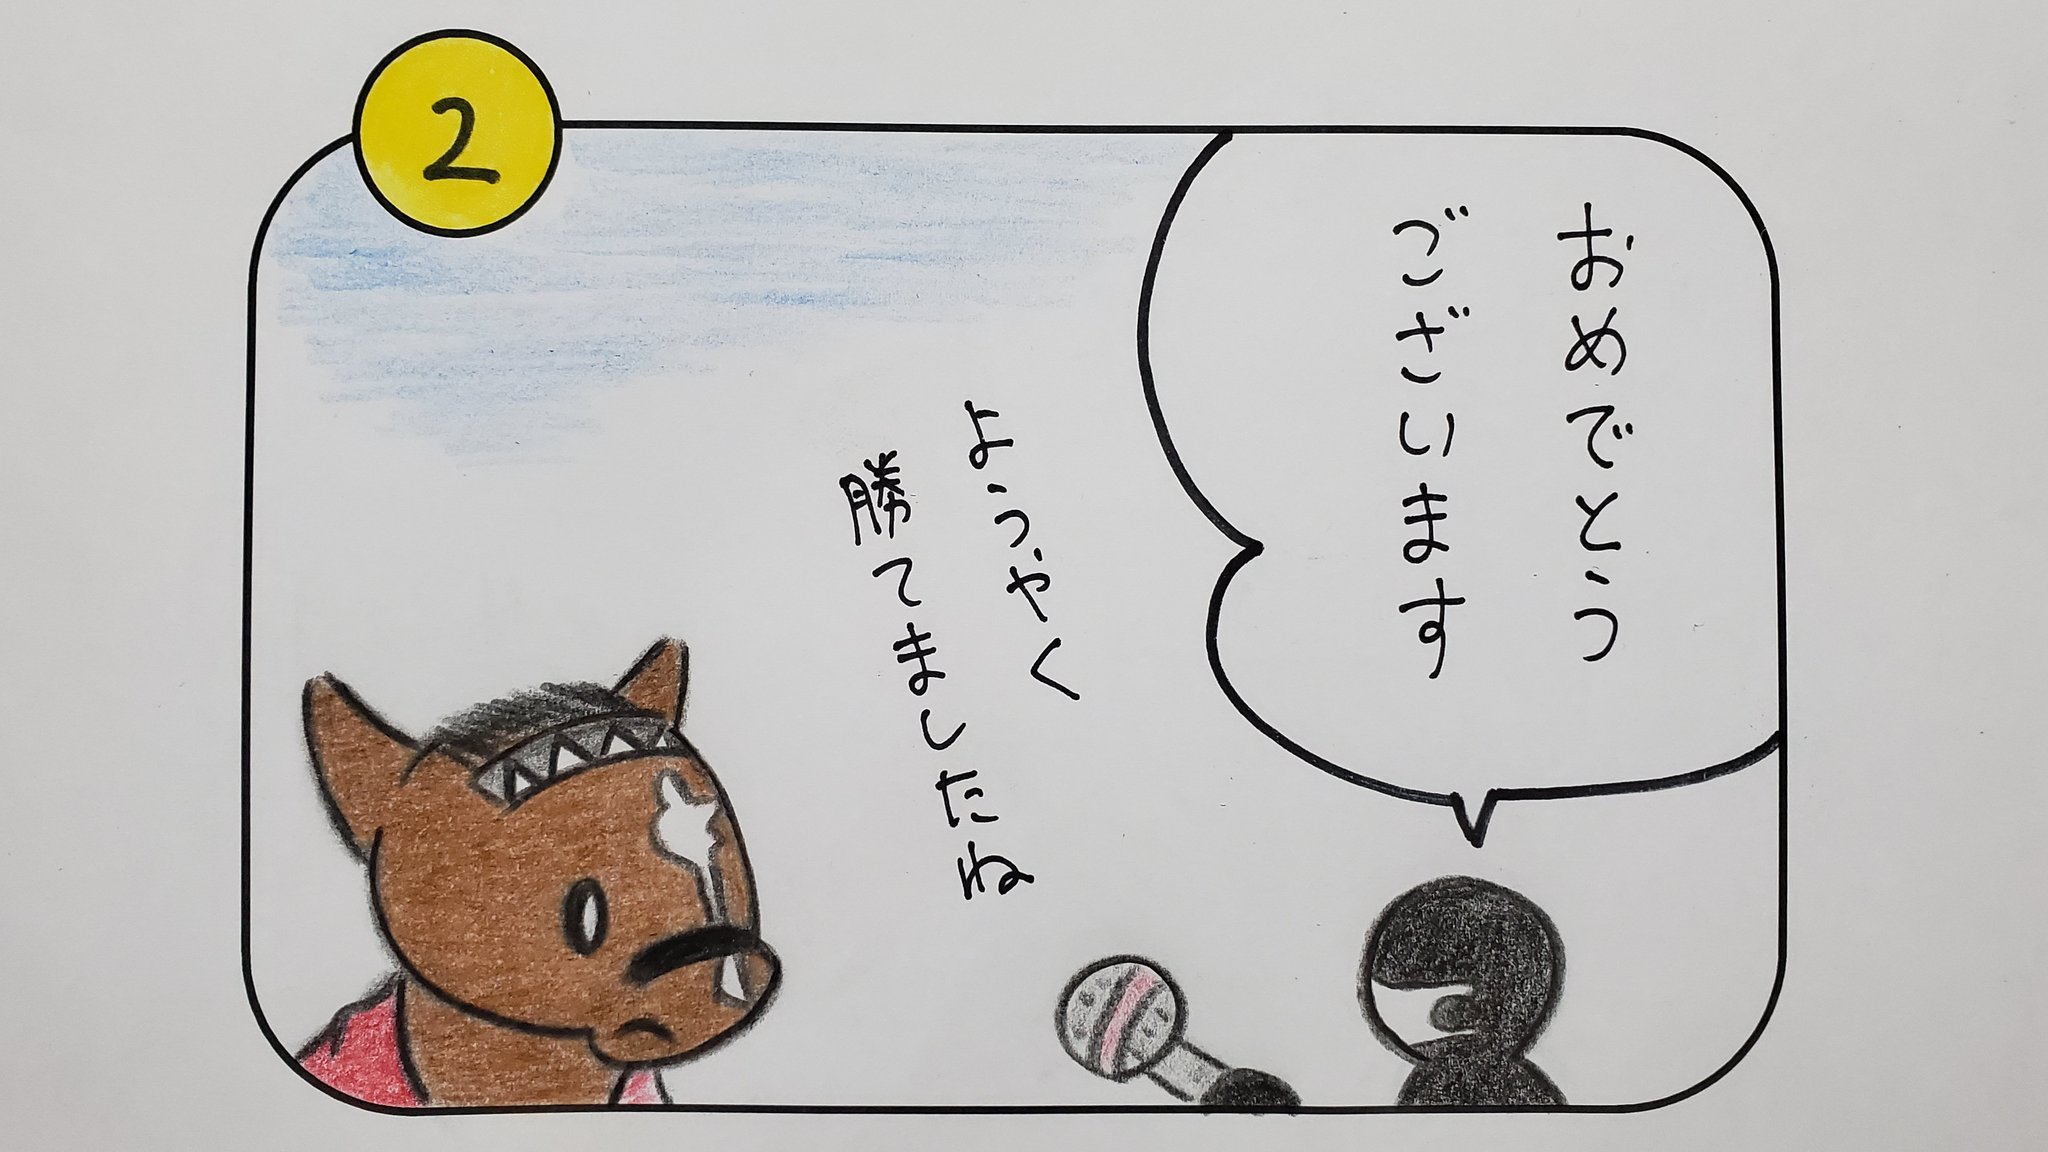 2
おめでとう
ございます
ようやく
勝てましたね